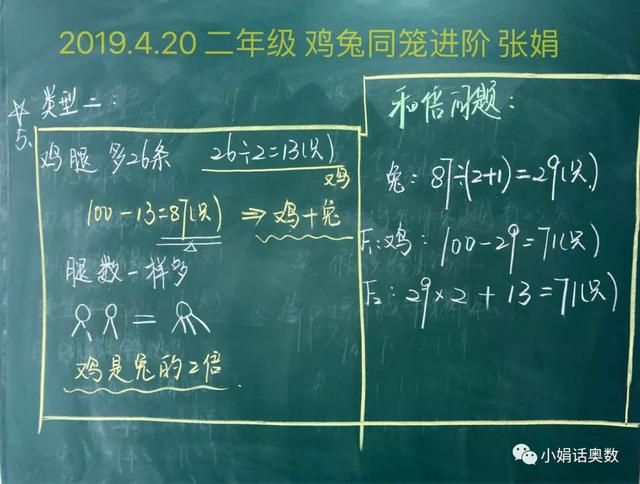 2019.4.20 二年级 鸡兔同笼进阶 张娟
☆ 类型二:
5、
鸡腿 多26条 26÷2=13(只)
鸡
100-13=87(只) ⇒ 鸡+兔
腿数一样多
=
鸡是兔的2倍
和倍问题:
兔: 87÷(2+1)=29(只)
F₁:鸡: 100-29=71(只)
F₂: 29×2+13=71(只)
小娟话奥数